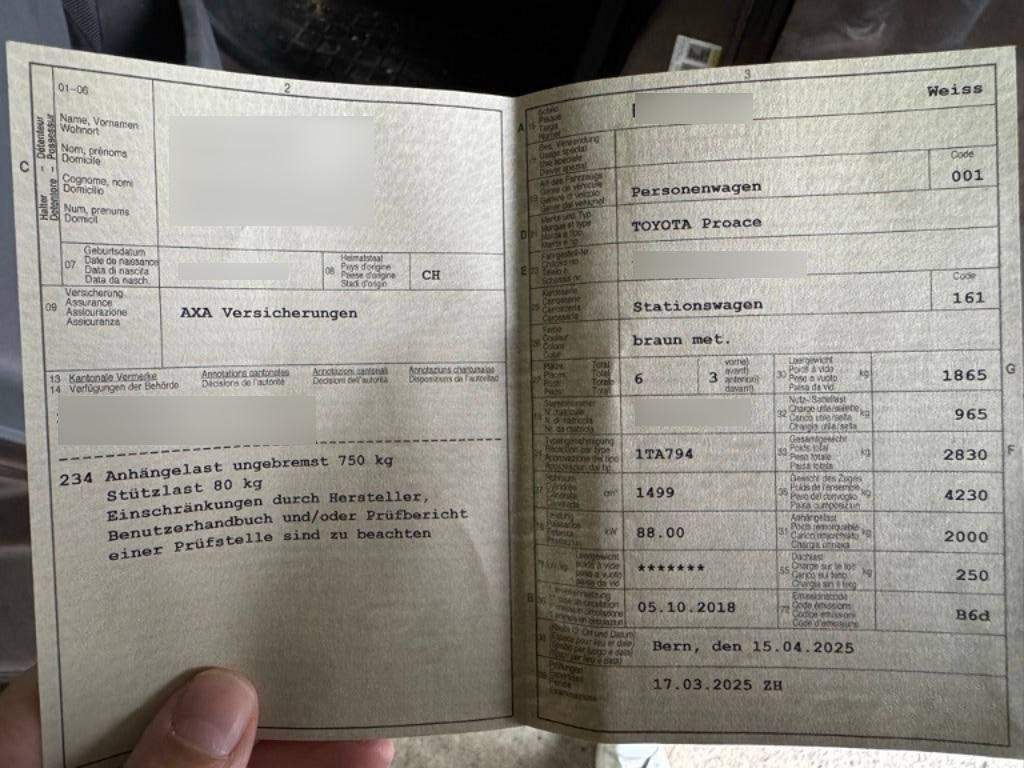 2
01-06
C
Halter - Détenteur
Detentore - Possessur
Name, Vornamen
Wohnort
Nom, prénoms
Domicile
Cognome, nomi
Domicilio
Num, prenums
Domicil
07
Geburtsdatum
Date de naissance
Data di nascita
Data da nasch.
08
Heimatstaat
Pays d'origine
Paese d'origine
Stadi d'origin
CH
09
Versicherung
Assurance
Assicurazione
Assicuranza
AXA Versicherungen
13 Kantonale Vermerke
14 Verfügungen der Behörde
Annotations cantonales
Décisions de l'autorité
Annotazioni cantonali
Decisioni dell'autorità
Annotaziuns chantunalas
Disposiziuns da l'autoritad
234 Anhängelast ungebremst 750 kg
Stützlast 80 kg
Einschränkungen durch Hersteller,
Benutzerhandbuch und/oder Prüfbericht
einer Prüfstelle sind zu beachten
3
A
Weiss
Code
Personenwagen 001
D
TOYOTA Proace
E
Code
Stationswagen 161
braun met.
6
3
30 Leergewicht
Poids à vide
Peso a vuoto
kg
1865
G
32
kg
965
1TA794
33 Gesamtgewicht
Poids total
Peso totale
kg
2830
F
cm³
1499
35
kg
4230
kW
88.00
31 Anhängelast
kg
2000
*******
55 Dachlast
kg
250
B
05.10.2018
72 Emissionscode
Code émissions
Codice emissioni
B6d
Bern, den 15.04.2025
17.03.2025 ZH